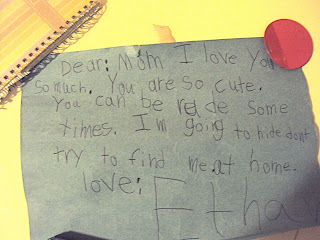 Dear: Mom I love You
so much. You are so cute.
You can be rede some
times. I'm going to hide dont
try to find me. at home.
love:
Ethan